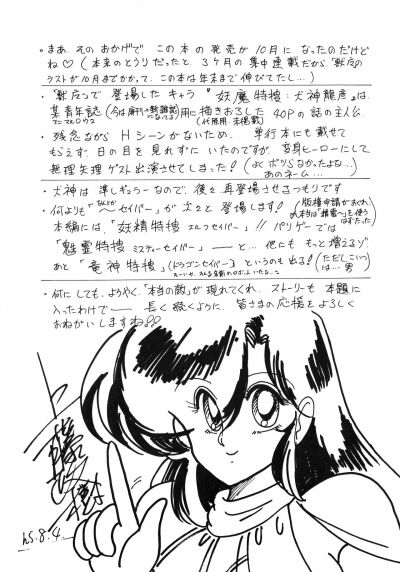 ・まあ、そのおかげで この本の発売が10月になったのだけど
ね♡(本来のとうりだったと、3ヶ月の集中連載だから
ラストが10月までかかって、この本は年末まで伸びてたし…)
登場したキャラ "妖魔特捜・犬神龍彦"は、
某青年誌 用に描きおろした 40Pの話の主人公。
・残念ながら Hシーンがないため、単行本にも載せて
もらえず、日の目を見れずにいたのですが、変身ヒーローにして
無理矢理ゲスト出演させてしまった!(よくボツらなかったよな…
あのネーム…)
・犬神は準レギュラーなので、後々再登場させるつもりです
・何よりも「〜セイバー」が次々と登場します!
本編には、"妖精特捜 エルフセイバー"!! バリゲーでは
「魅霊特捜 ミスティーセイバー」――と… 他にももっと増えるゾ。
あと「竜神特捜」(ドラゴンセイバー)というのも出る!(ただしこいつ
は…男)
・何にしても、ようやく「本当の敵」が現れてくれ、ストーリーも本題に
入ったわけで―― 長く続くように、皆さまの応援をよろしく
おねがいしますね♡♡
h5.8.4